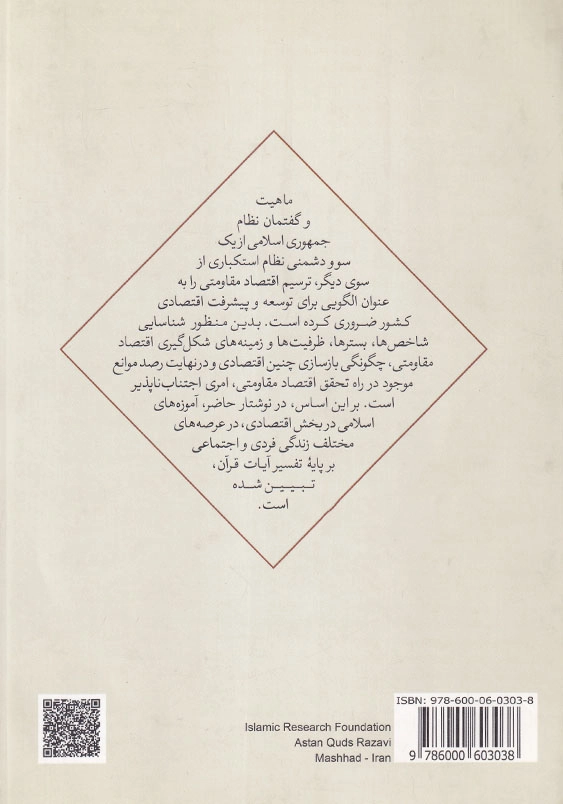 ماهیت
و گفتمان نظام
جمهوری اسلامی از یک
سو و دشمنی نظام استکباری از
سوی دیگر، ترسیم اقتصاد مقاومتی را به
عنوان الگویی برای توسعه و پیشرفت اقتصادی
کشور ضروری کرده است. بدین منظور شناسایی
شاخص‌ها، بسترها، ظرفیت‌ها و زمینه‌های شکل‌گیری اقتصاد
مقاومتی، چگونگی بازسازی چنین اقتصادی و درنهایت رصد موانع
موجود در راه تحقق اقتصاد مقاومتی، امری اجتناب‌ناپذیر
است. بر این اساس، در نوشتار حاضر، آموزه‌های
اسلامی در بخش اقتصادی، در عرصه‌های
مختلف زندگی فردی و اجتماعی
بر پایهٔ تفسیر آیات قرآن،
تبیین شده
است.
ISBN: 978-600-06-0303-8
Islamic Research Foundation
Astan Quds Razavi
Mashhad - Iran
9 786000 603038